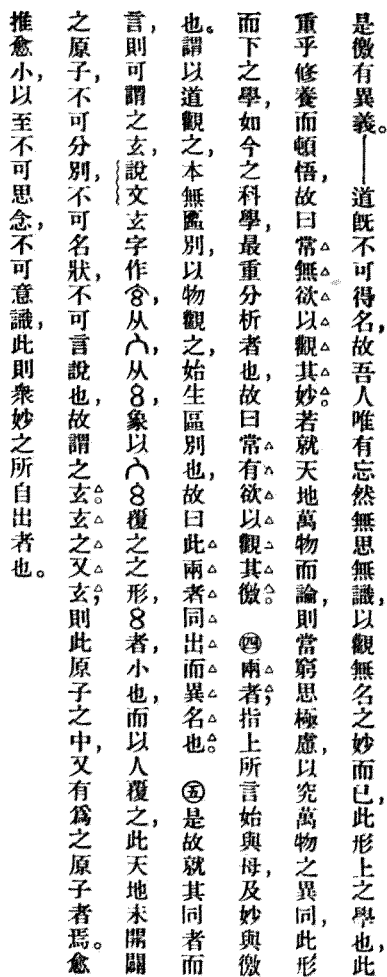 是徼有異義。——道既不可得名，故吾人唯有忘然無思無識，以觀無名之妙而已，此形上之學也，此
重乎修養而頓悟，故曰常無欲以觀其妙。若就天地萬物而論，則當窮思極慮，以究萬物之異同，此形
而下之學，如今之科學，最重分析者也，故曰常有欲以觀其徼。㊃兩者，指上所言始與母，及妙與徼
也。謂以道觀之，本無區別，以物觀之，始生區別也，故曰此兩者同出而異名也。㊄是故就其同者而
言，則可謂之玄，說文玄字作，从，从8，象以8覆之之形，8者，小也，而以人覆之，此天地未開闢
之原子，不可分別，不可名狀，不可言說也，故謂之玄。玄之又玄，則此原子之中，又有爲之原子者焉。愈
推愈小，以至不可思念，不可意識，此則衆妙之所自出者也。